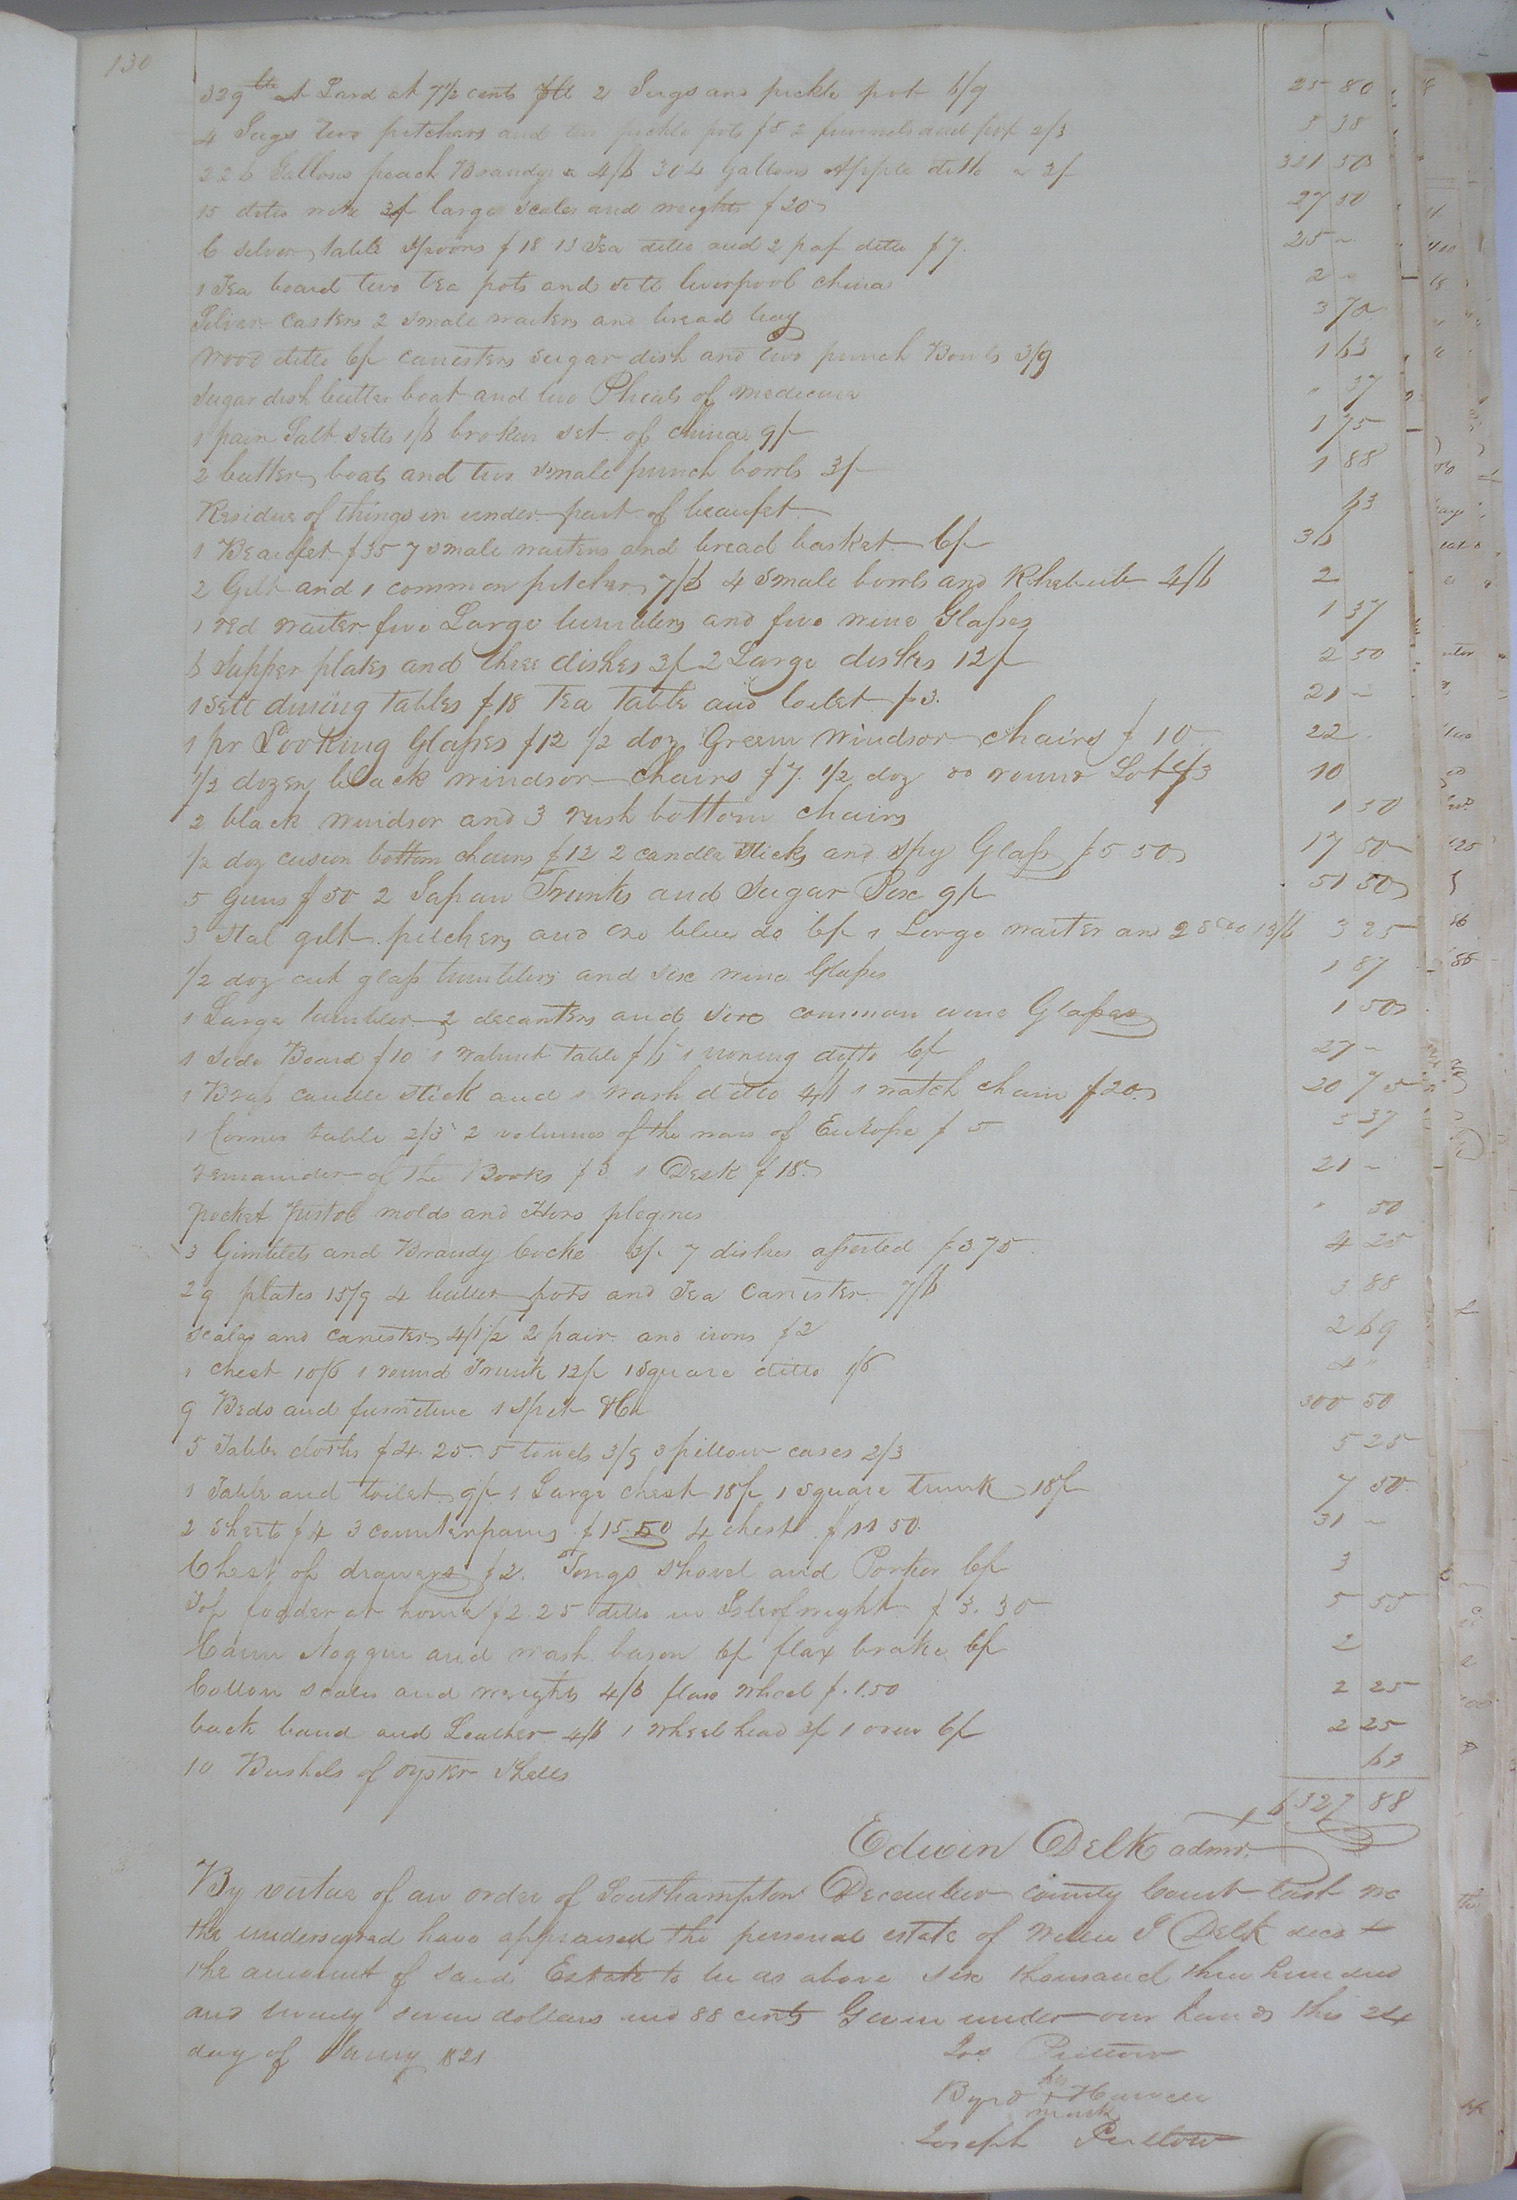 130
329 lbs of Lard at 7 1/2 cents 2 Jugs and pickle pot 6/9 25 80
4 Jugs two pitchers and two pickle pots $5 2 funnels and pot 2/3 5 38
226 Gallons peach Brandy a 4/6 304 Gallons Apple ditto a 3/ 321 50
15 ditto 3/ large scales and weights $20 27 50
6 silver table Spoons $18 13 Tea ditto and 2 pap ditto $7 25 "
1 Tea board two tea pots and sett liverpool china 2 "
Silver Casters 2 small waiters and bread tray 3 70
Wood ditto 6/ canesters sugar dish and two punch Bowls 3/9 1 63
Sugar dish butter boat and two Pheals of medicine " 37
1 pair Salt sets 1/6 broken set of china 9/ 1 75
2 butter boats and two small punch bowls 3/ 1 88
Residue of things in under part of beaufet 63
1 Beaufet $35 7 small waiters and bread basket 6/ 36
2 Gilt and 1 common pitcher 7/6 4 small bowls and 4/6 2
1 red waiter five Large tumblers and five wine Glasses 1 37
6 Supper plates and three dishes 3/ 2 Large dishes 12/ 2 50
1 sett dining tables $18 Tea table and toilet $3. 21 "
1 pr Looking Glasses $12 1/2 doz Green Windsor chairs $10 22
1/2 dozen black windsor chairs $7. 1/2 doz do round $3 10
2 black windsor and 3 rush bottom chairs 1 50
1/2 doz cusion bottom chairs $12 2 candle sticks and spy Glass $5 50 17 50
5 Guns $50 2 Japan Trunks and Sugar Box 9/ 51 50
3 gilt pitchers and one blue do 6/ 1 Large waiter and 2 13/6 3 25
1/2 doz cut glass tumblers and six wine Glasses 1 87
1 Large tumbler 2 decanters and six common wine Glasses 1 50
1 Side Board $10 1 walnut table $ 1 ironing ditto 6/ 27 "
1 Brass candle stick and 1 wash ditto 4/6 1 watch chain $20 20 75
1 Corner table 2/3 2 volumes of the wars of Europe $5 5 37
remainder of the Books $3 1 Desk $18 21 "
pocket pistol molds and " 50
3 Gimblets and Brandy Cocke 3/ 7 dishes assorted $3 75 4 25
29 plates 15/9 4 butter pots and Tea Canister 7/6 3 88
scales and canister 4/1 1/2 2 pair and irons $2 2 69
1 chest 10/6 1 round Trunk 12/ 1 square ditto 1/6 4 "
9 Beds and furniture 1 300 50
5 Table cloths $4. 25 5 towels 3/9 3 pillow cases 2/3 5 25
1 Table and toilet 9/ 1 Large chest 18/ 1 square trunk 18/ 7 50
2 Sheets $4 3 counterpains $15.50 4 chests $11 50 31 "
Chest of drawers $2. Tongs shovel and Porker 6/ 3
Top fodder at home $2.25 ditto in Isle of wight $3.30 5 55
Cann Noggin and wash bason 6/ flax brake 6/ 2
Cotton scales and weights 4/6 flax wheel $1.50 2 25
back band and Leather 4/6 1 wheel head 3/ 1 oven 6/ 2 25
10 Bushels of oyster Shells 63
$6327 88
Edwin Delk admr.
By virtue of an order of Southampton December county Court last we
the undersigned have appraised the personal estate of J Delk decd
the amount of said Estate to be as above six thousand three hundred
and twenty seven dollars and 88 cents Given under our hands this 24
day of Jauny 1821
Jos Pretlow
his
Byrd + Harvell
mark
Joseph Pretlow